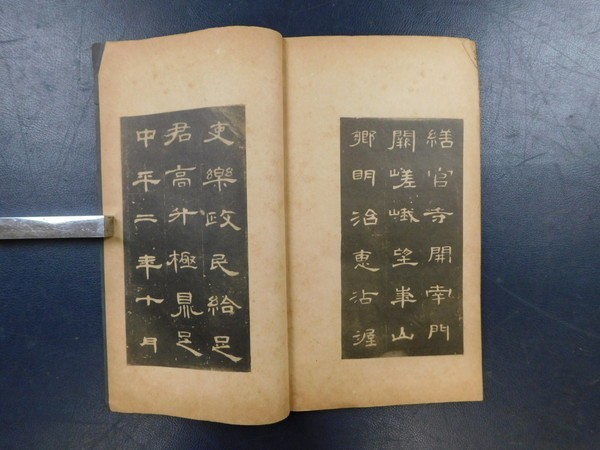 繕官寺開南門
闕嵯峨望華山
鄉明治惠沾渥
吏樂政民給足
君高升極鼎足
中平二年十月